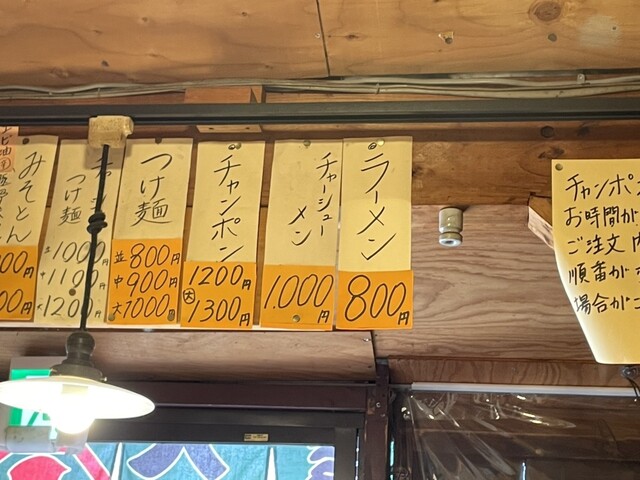 ラーメン
800円
チャーシュー
メン
1.000円
チャンポン
1200円
大 1300円
つけ麺
並 800円
中 900円
大 1000円
つけ麺
1000円
中 1100円
大 1200
みそとん
00円
00円
チャンポン
お時間が
ご注文内
順番が
場合がご